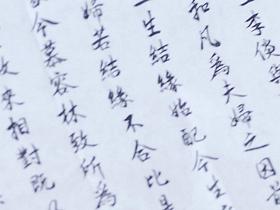 李
和凡為夫婦之因
生結緣始配今生
婦若結緣不合比是
今慕容林致所為
來相對既